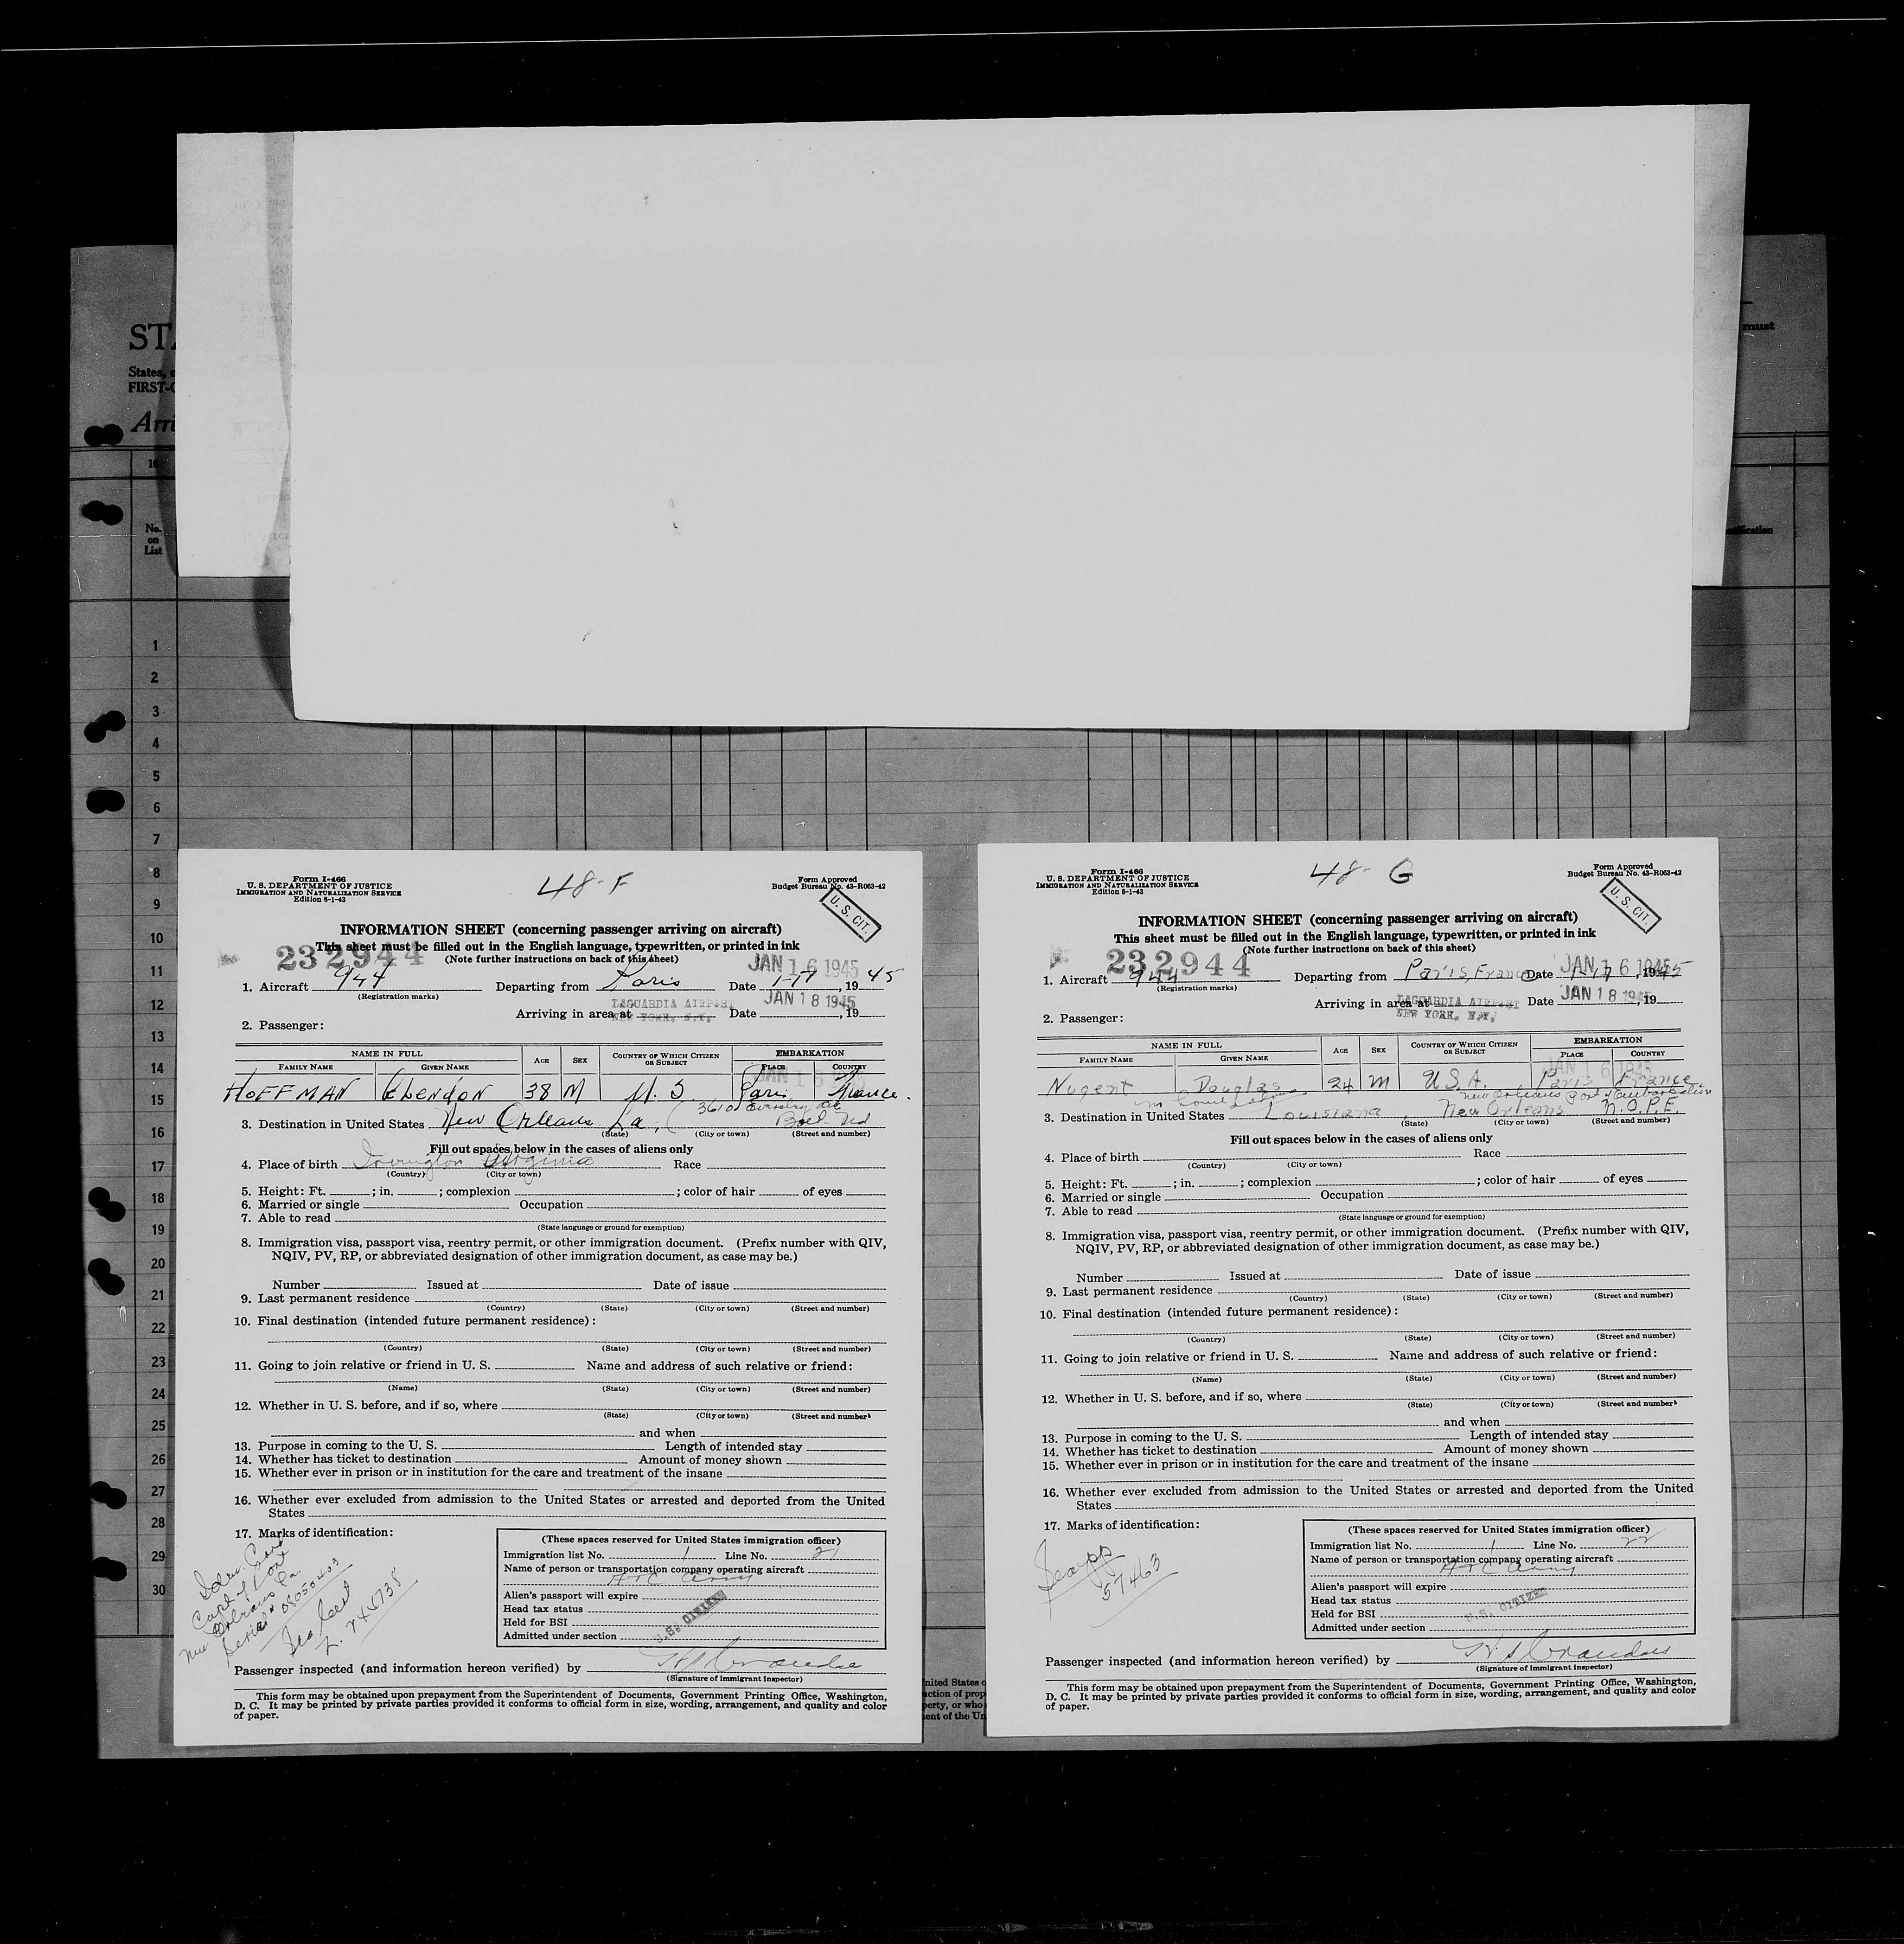 STA
States, o
FIRST-C
Arri
must
16
No.
on
List
ification
1
2
3
4
5
6
7
8
9
10
11
12
13
14
15
16
17
18
19
20
21
22
23
24
25
26
27
28
29
30
Form I-466
U. S. DEPARTMENT OF JUSTICE
IMMIGRATION AND NATURALIZATION SERVICE
Edition 8-1-43
48-F
Form Approved
Budget Bureau No. 43-R063-42
U. S. CIT.
INFORMATION SHEET (concerning passenger arriving on aircraft)
This sheet must be filled out in the English language, typewritten, or printed in ink
(Note further instructions on back of this sheet)
232944
JAN 16 1945
1. Aircraft 944 Departing from Paris Date 1-17, 1945
(Registration marks)
JAN 18 1945
Arriving in area at LAGUARDIA AIRPORT Date , 19
NEW YORK, N.Y.
2. Passenger:
NAME IN FULL AGE SEX COUNTRY OF WHICH CITIZEN OR SUBJECT EMBARKATION
FAMILY NAME GIVEN NAME PLACE COUNTRY
JAN 16
HOFFMAN 38 M U. S. Paris France.
3610
3. Destination in United States New Orleans La,
(State) (City or town) (Street and number)
Fill out spaces below in the cases of aliens only
4. Place of birth Virginia Race
(Country) (City or town)
5. Height: Ft. ; in. ; complexion ; color of hair of eyes
6. Married or single Occupation
7. Able to read
(State language or ground for exemption)
8. Immigration visa, passport visa, reentry permit, or other immigration document. (Prefix number with QIV,
NQIV, PV, RP, or abbreviated designation of other immigration document, as case may be.)
Number Issued at Date of issue
9. Last permanent residence
(Country) (State) (City or town) (Street and number)
10. Final destination (intended future permanent residence):
(Country) (State) (City or town) (Street and number)
11. Going to join relative or friend in U. S. Name and address of such relative or friend:
(Name) (State) (City or town) (Street and number)
12. Whether in U. S. before, and if so, where
(State) (City or town) (Street and number)
and when
13. Purpose in coming to the U. S. Length of intended stay
14. Whether has ticket to destination Amount of money shown
15. Whether ever in prison or in institution for the care and treatment of the insane
16. Whether ever excluded from admission to the United States or arrested and deported from the United
States
17. Marks of identification:
Capt of Port
New Orleans La.
(These spaces reserved for United States immigration officer)
Immigration list No. 1 Line No. 21
Name of person or transportation company operating aircraft
ATC Army
Alien's passport will expire
Head tax status
Held for BSI
Admitted under section
U.S. CITIZEN
Passenger inspected (and information hereon verified) by
(Signature of Immigrant Inspector)
This form may be obtained upon prepayment from the Superintendent of Documents, Government Printing Office, Washington,
D. C. It may be printed by private parties provided it conforms to official form in size, wording, arrangement, and quality and color
of paper.
nited States o
ction of prop
perty, or who
ent of the Un
Form I-466
U. S. DEPARTMENT OF JUSTICE
IMMIGRATION AND NATURALIZATION SERVICE
Edition 8-1-43
48-G
Form Approved
Budget Bureau No. 43-R063-42
U. S. CIT.
INFORMATION SHEET (concerning passenger arriving on aircraft)
This sheet must be filled out in the English language, typewritten, or printed in ink
(Note further instructions on back of this sheet)
232944
JAN 16 1945
1. Aircraft 944 Departing from Paris, France Date 1-17, 1945
(Registration marks)
JAN 18 1945
Arriving in area at LAGUARDIA AIRPORT Date , 19
NEW YORK, N.Y.
2. Passenger:
NAME IN FULL AGE SEX COUNTRY OF WHICH CITIZEN OR SUBJECT EMBARKATION
FAMILY NAME GIVEN NAME PLACE COUNTRY
JAN 16 1945
Nugent Douglas 24 M U.S.A. Paris France
New Orleans Port of Embarkation
3. Destination in United States Louisiana, New Orleans N.O.P.E.
(State) (City or town) (Street and number)
Fill out spaces below in the cases of aliens only
4. Place of birth Race
(Country) (City or town)
5. Height: Ft. ; in. ; complexion ; color of hair of eyes
6. Married or single Occupation
7. Able to read
(State language or ground for exemption)
8. Immigration visa, passport visa, reentry permit, or other immigration document. (Prefix number with QIV,
NQIV, PV, RP, or abbreviated designation of other immigration document, as case may be.)
Number Issued at Date of issue
9. Last permanent residence
(Country) (State) (City or town) (Street and number)
10. Final destination (intended future permanent residence):
(Country) (State) (City or town) (Street and number)
11. Going to join relative or friend in U. S. Name and address of such relative or friend:
(Name) (State) (City or town) (Street and number)
12. Whether in U. S. before, and if so, where
(State) (City or town) (Street and number)
and when
13. Purpose in coming to the U. S. Length of intended stay
14. Whether has ticket to destination Amount of money shown
15. Whether ever in prison or in institution for the care and treatment of the insane
16. Whether ever excluded from admission to the United States or arrested and deported from the United
States
17. Marks of identification:
57463
(These spaces reserved for United States immigration officer)
Immigration list No. 1 Line No. 22
Name of person or transportation company operating aircraft
ATC Army
Alien's passport will expire
Head tax status
Held for BSI
Admitted under section
U.S. CITIZEN
Passenger inspected (and information hereon verified) by
(Signature of Immigrant Inspector)
This form may be obtained upon prepayment from the Superintendent of Documents, Government Printing Office, Washington,
D. C. It may be printed by private parties provided it conforms to official form in size, wording, arrangement, and quality and color
of paper.